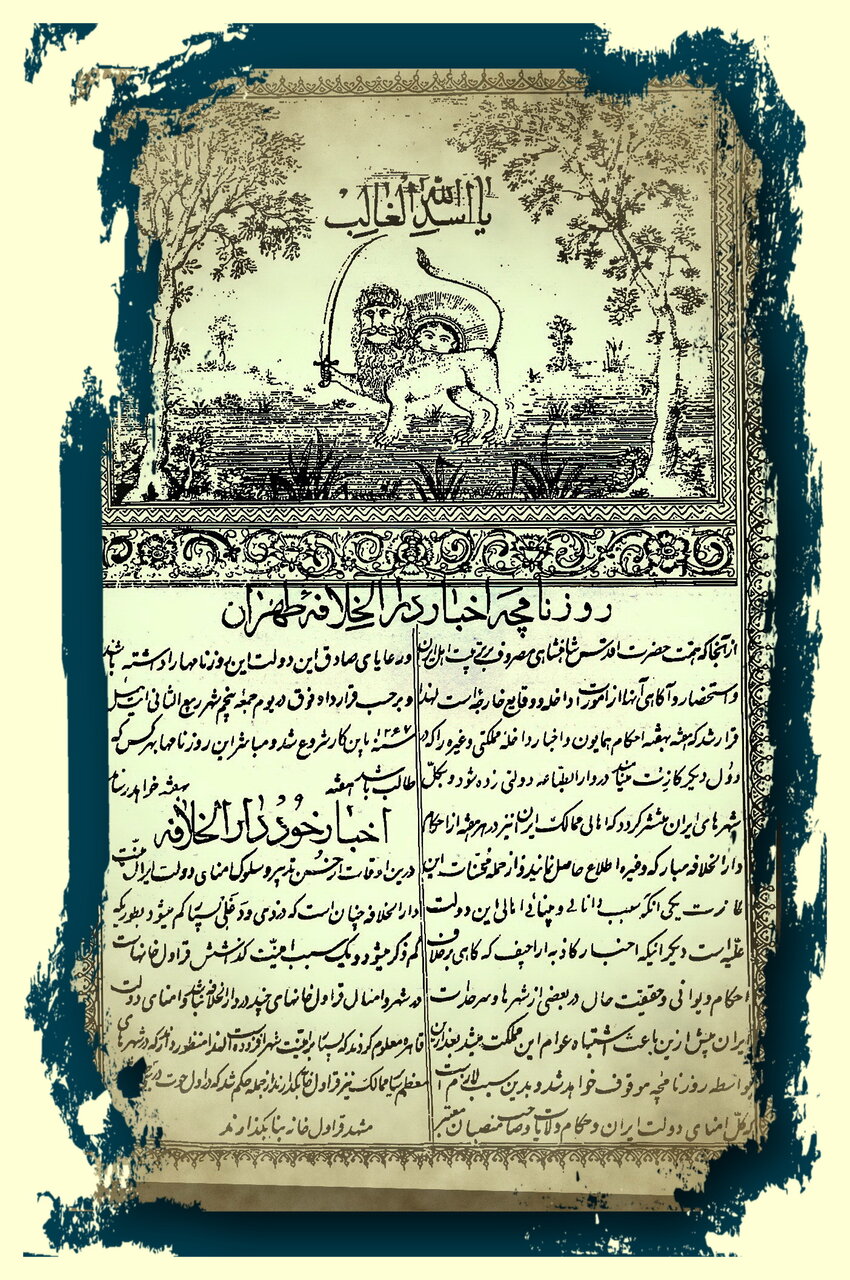 یا اسد الله الغالب
روزنامچه اخبار دار الخلافه طهران
از آنجا که همت حضرت اقدس شاهنشاهی مصروف بر تربیت اهل ایران
و استحضار و آگاهی آنها از امورات داخله و وقایع خارجه است لهذا
قرار شد که هفته بهفته احکام همایون و اخبار داخله مملکتی و غیره را که در
دول دیگر کازت مینامند در دار الطباعه دولتی زده شود و بکل
شهرهای ایران منتشر گردد که اهالی ممالک ایران نیز در هر هفته از احکام
دار الخلافه مبارکه و غیره اطلاع حاصل نمایند و از جمله محسنات این
کازت یکی آنکه سبب دانائی و بینائی اهالی این دولت
علیه است دیگر اینکه اخبار کاذبه اراجیف که گاهی برخلاف
احکام دیوانی و حقیقت حال در بعضی از شهرها و سرحدات
ایران پیش ازین باعث اشتباه عوام این مملکت میشد بعد ازین
بواسطه روزنامچه موقوف خواهد شد و بدین سبب لازم است
که کل امنای دولت ایران و حکام ولایات و صاحب منصبان معتبر
و رعایای صادق این دولت این روزنامها را داشته باشند
و بر حسب قرارداد فوق در یوم جمعه پنجم شهر ربیع الثانی ایت ئیل
سنه ۱۲۶۷ باین کار شروع شد و مباشر این روزنامها بهر کس که
طالب باشد هفته بهفته خواهد رساند
اخبار خود دار الخلافه
درین اوقات از حسن تدبیر و سلوک امنای دولت ایران امنیت
دار الخلافه چنان است که دزدی و دغلی بسیار کم میشود بطوریکه
کم ذکر میشود و یک سبب امنیت گذاشتن قراول خانهاست
در شهر و امسال قراول خانهای چند در دار الخلافه بنا شد و امنای دولت
قاهره معلوم کردند که بسیار بر امنیت شهر افزوده است لهذا منظور دارند که در شهرهای
معظم سایر ممالک نیز قراول خانه بگذارند از جمله حکم شد که در اول حوت در
مشهد قراول خانه بنا بگذارند